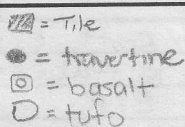 = Tile
= travertine
= basalt
= tufo